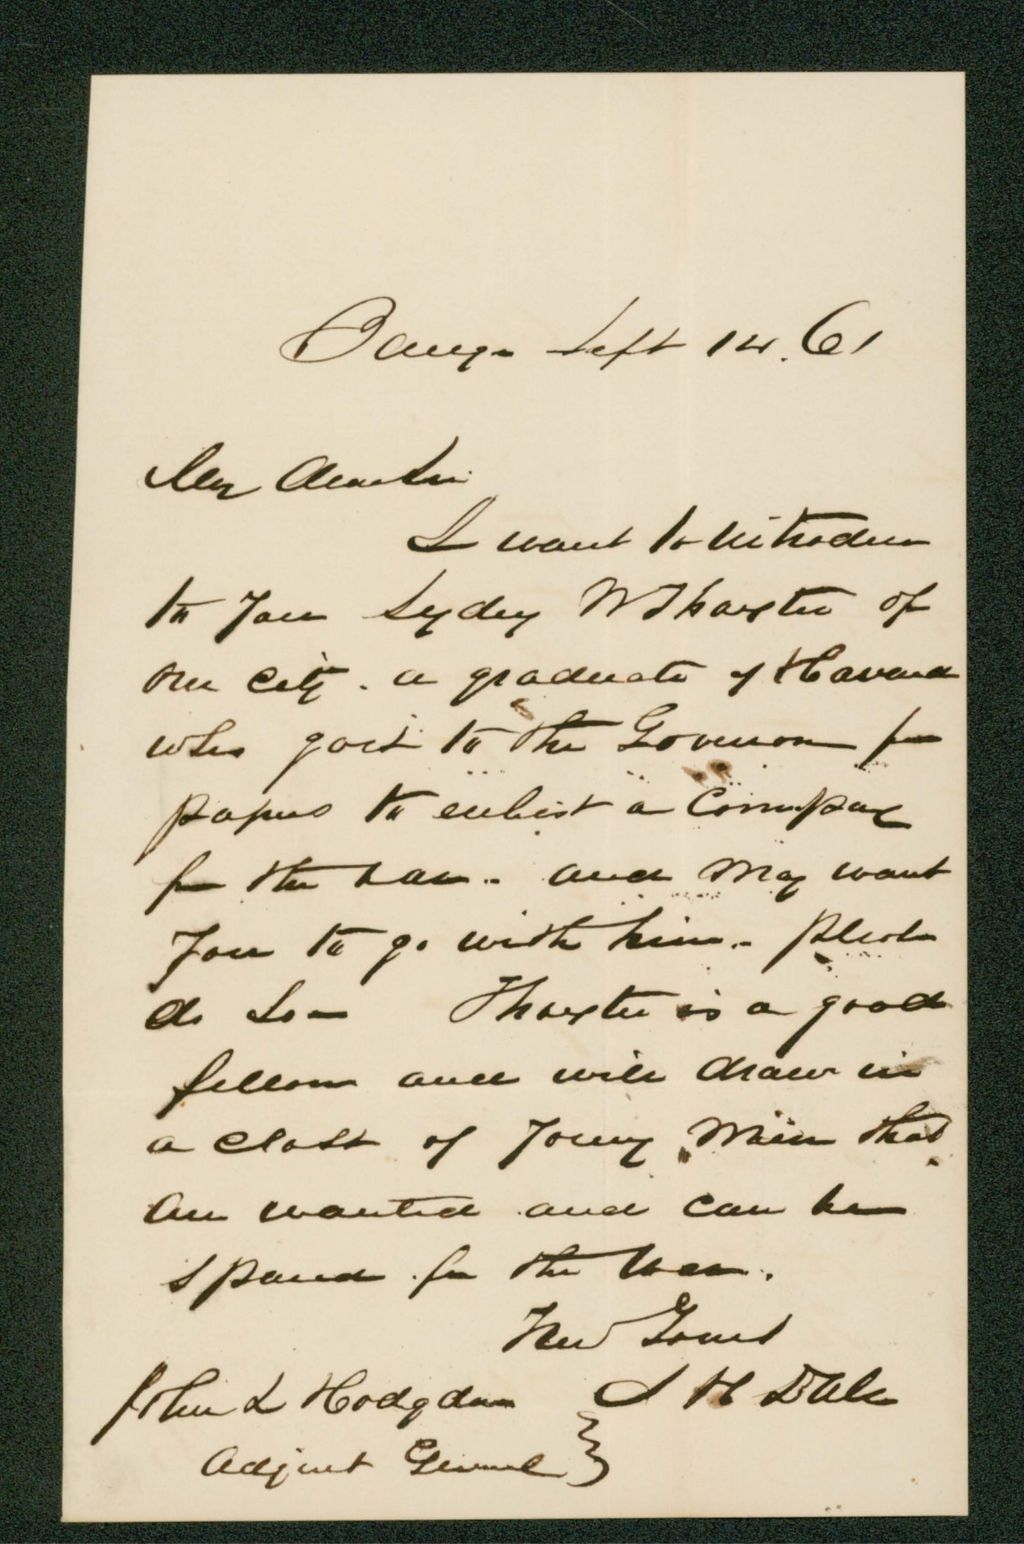 Bangor Sept 14. 61
My Dear Sir
I want to introduce
to You Sydney W Thaxter of
our City. a graduate of Havard
who goes to the Governor for
papers to enlist a Company
for the war. and may want
You to go with him. please
do so Thaxter is a good
fellow and will draw in
a class of Young Men that
are wanted and can be
spared for the war.
Yours
S H Dale
John L Hodgdon
Adjunt General